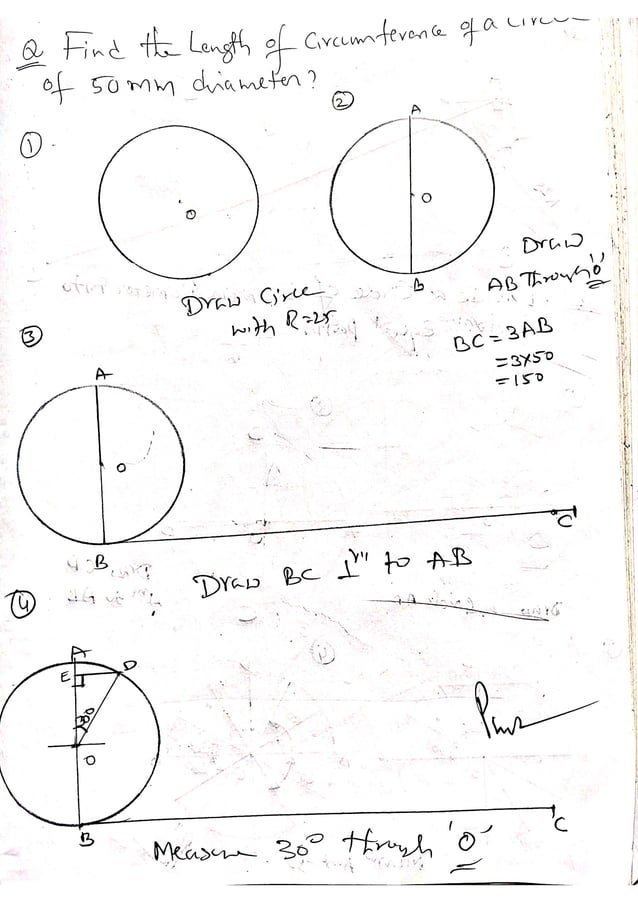 Q Find the Length of Circumference of a circle
of 50mm diameter?
①
②
A
O
B
O
Draw Circle
with R=25
Draw
AB Through 'O'
BC = 3AB
=3x50
=150
③
A
O
B
C
Draw BC ⊥r to AB
④
A
E
D
30°
O
B
C
Measure 30° through 'O'